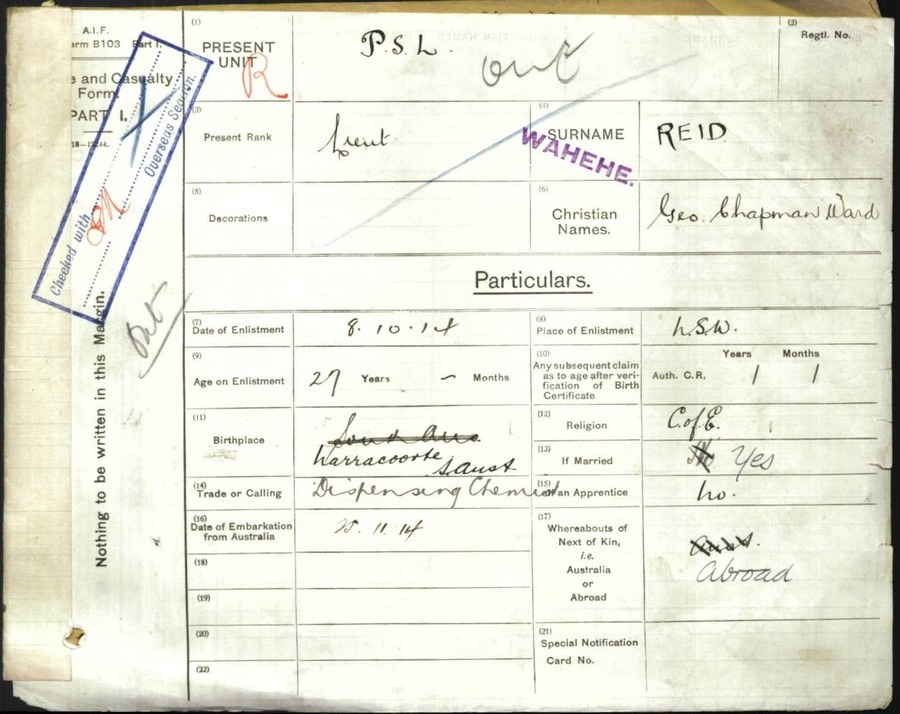 A.I.F.
orm B103 Part I.
e and Casualty
Form.
PART I.
Checked with
Overseas Section.
Nothing to be written in this Margin.
Out
(1)
PRESENT
UNIT
R
P.S.L.
Out
(2)
Regtl. No.
(3)
Present Rank
Lieut
(4)
SURNAME
REID
WAHEHE.
(5)
Decorations
(6)
Christian
Names.
Geo. Chapman Ward
Particulars.
(7)
Date of Enlistment
8. 10. 14
(8)
Place of Enlistment
N.S.W.
(9)
Age on Enlistment
27 Years – Months
(10)
Any subsequent claim
as to age after veri-
fication of Birth
Certificate
Years Months
Auth. C.R. / /
(11)
Birthplace
Narracoorte
S. Aust
(12)
Religion
C of E.
(13)
If Married
Yes
(14)
Trade or Calling
Dispensing Chemist
(15)
an Apprentice
No.
(16)
Date of Embarkation
from Australia
25. 11. 14
(17)
Whereabouts of
Next of Kin,
i.e.
Australia
or
Abroad
Aust.
Abroad
(18)
(19)
(20)
(21)
Special Notification
Card No.
(22)